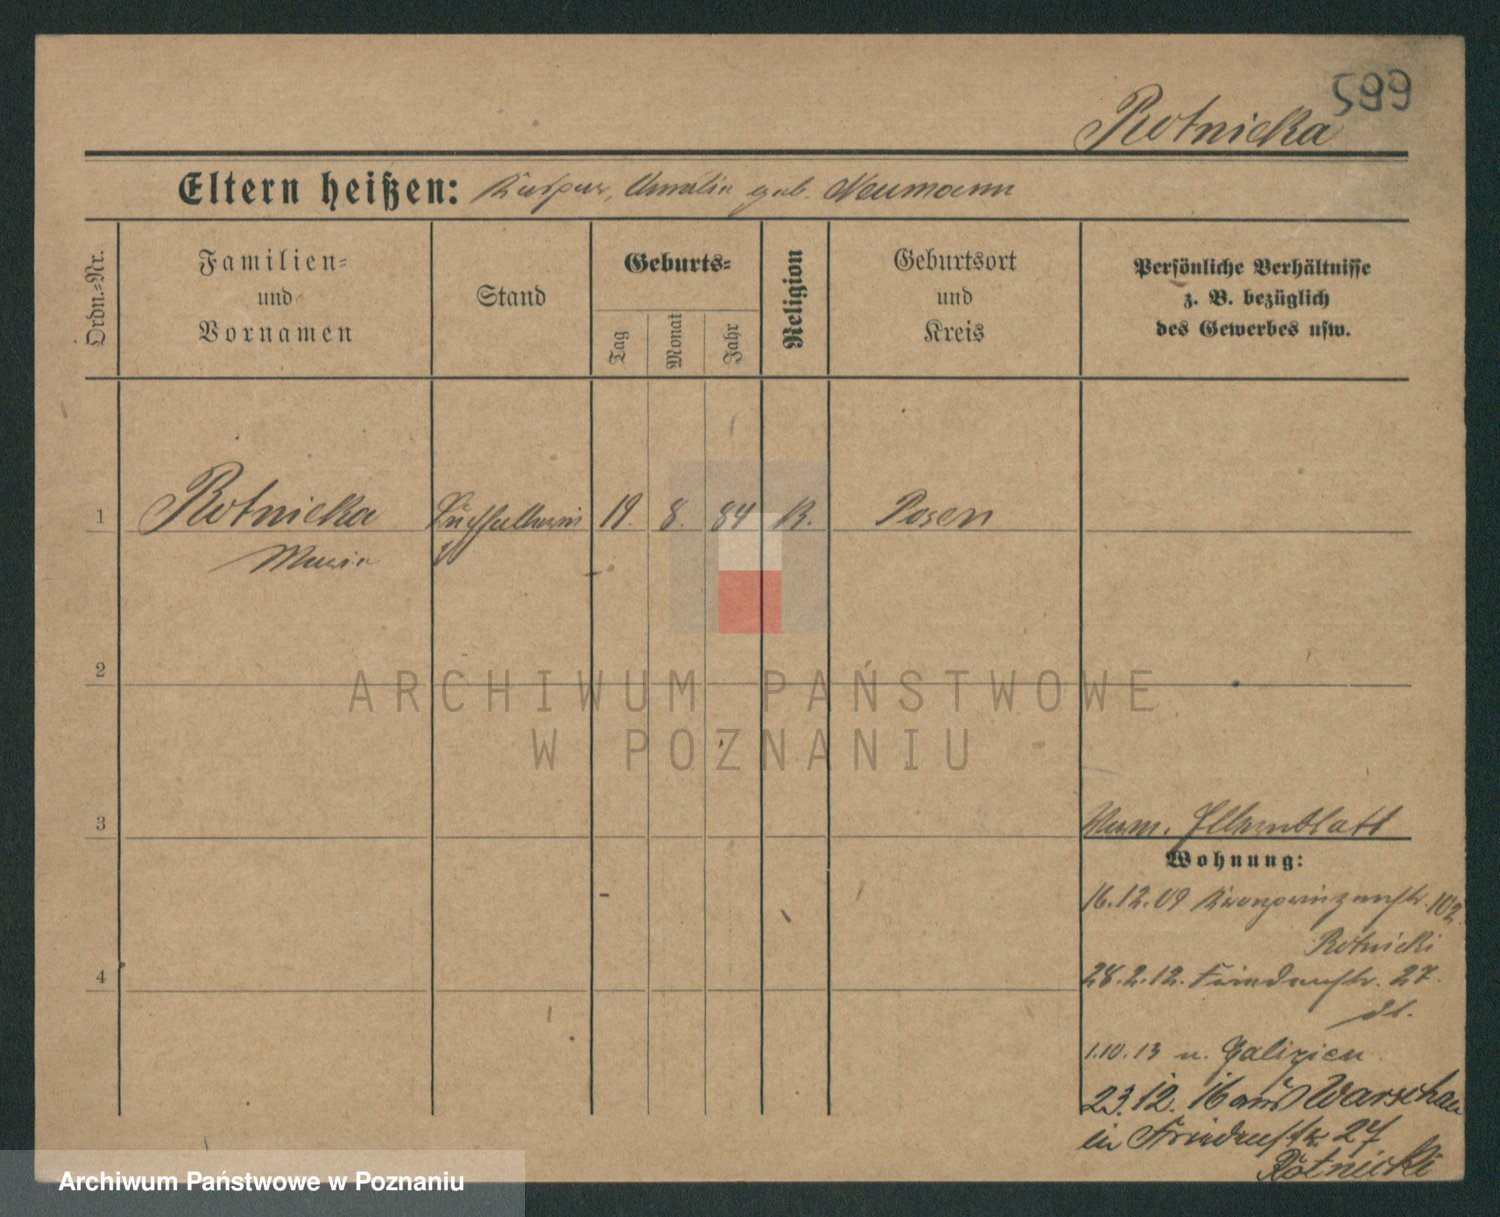 599
Rotnicka
Eltern heißen: Kaspar, Amalia geb. Neumann
Ordn.=Nr.
Familien=
und
Vornamen
Stand
Geburts=
Tag
Monat
Jahr
Religion
Geburtsort
und
Kreis
Persönliche Verhältnisse
z. B. bezüglich
des Gewerbes usw.
1 Rotnicka Buchhalterin 19. 8. 84 K. Posen
Maria
2
ARCHIWUM PAŃSTWOWE
W POZNANIU
3
Elternblatt
Wohnung:
16.12.09 Kronprinzenstr. 102
Rotnicki
4
28.2.12. Friedenstr. 27.
1.10.13 n. Galizien
23.12.16 aus Warschau
in Friedenstr. 27
Rotnicki
Archiwum Państwowe w Poznaniu